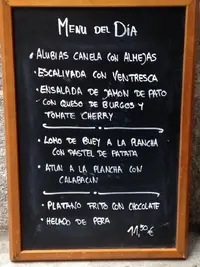 MENU DEL DÍA
• ALUBIAS CANELA CON ALMEJAS
• ESCALIVADA CON VENTRESCA
• ENSALADA DE JAMON DE PATO
CON QUESO DE BURGOS Y
TOMATE CHERRY
• LOMO DE BUEY A LA PLANCHA
CON PASTEL DE PATATA
• ATUN A LA PLANCHA CON
CALABACIN
• PLATANO FRITO CON CHOCOLATE
• HELADO DE PERA
11,50€